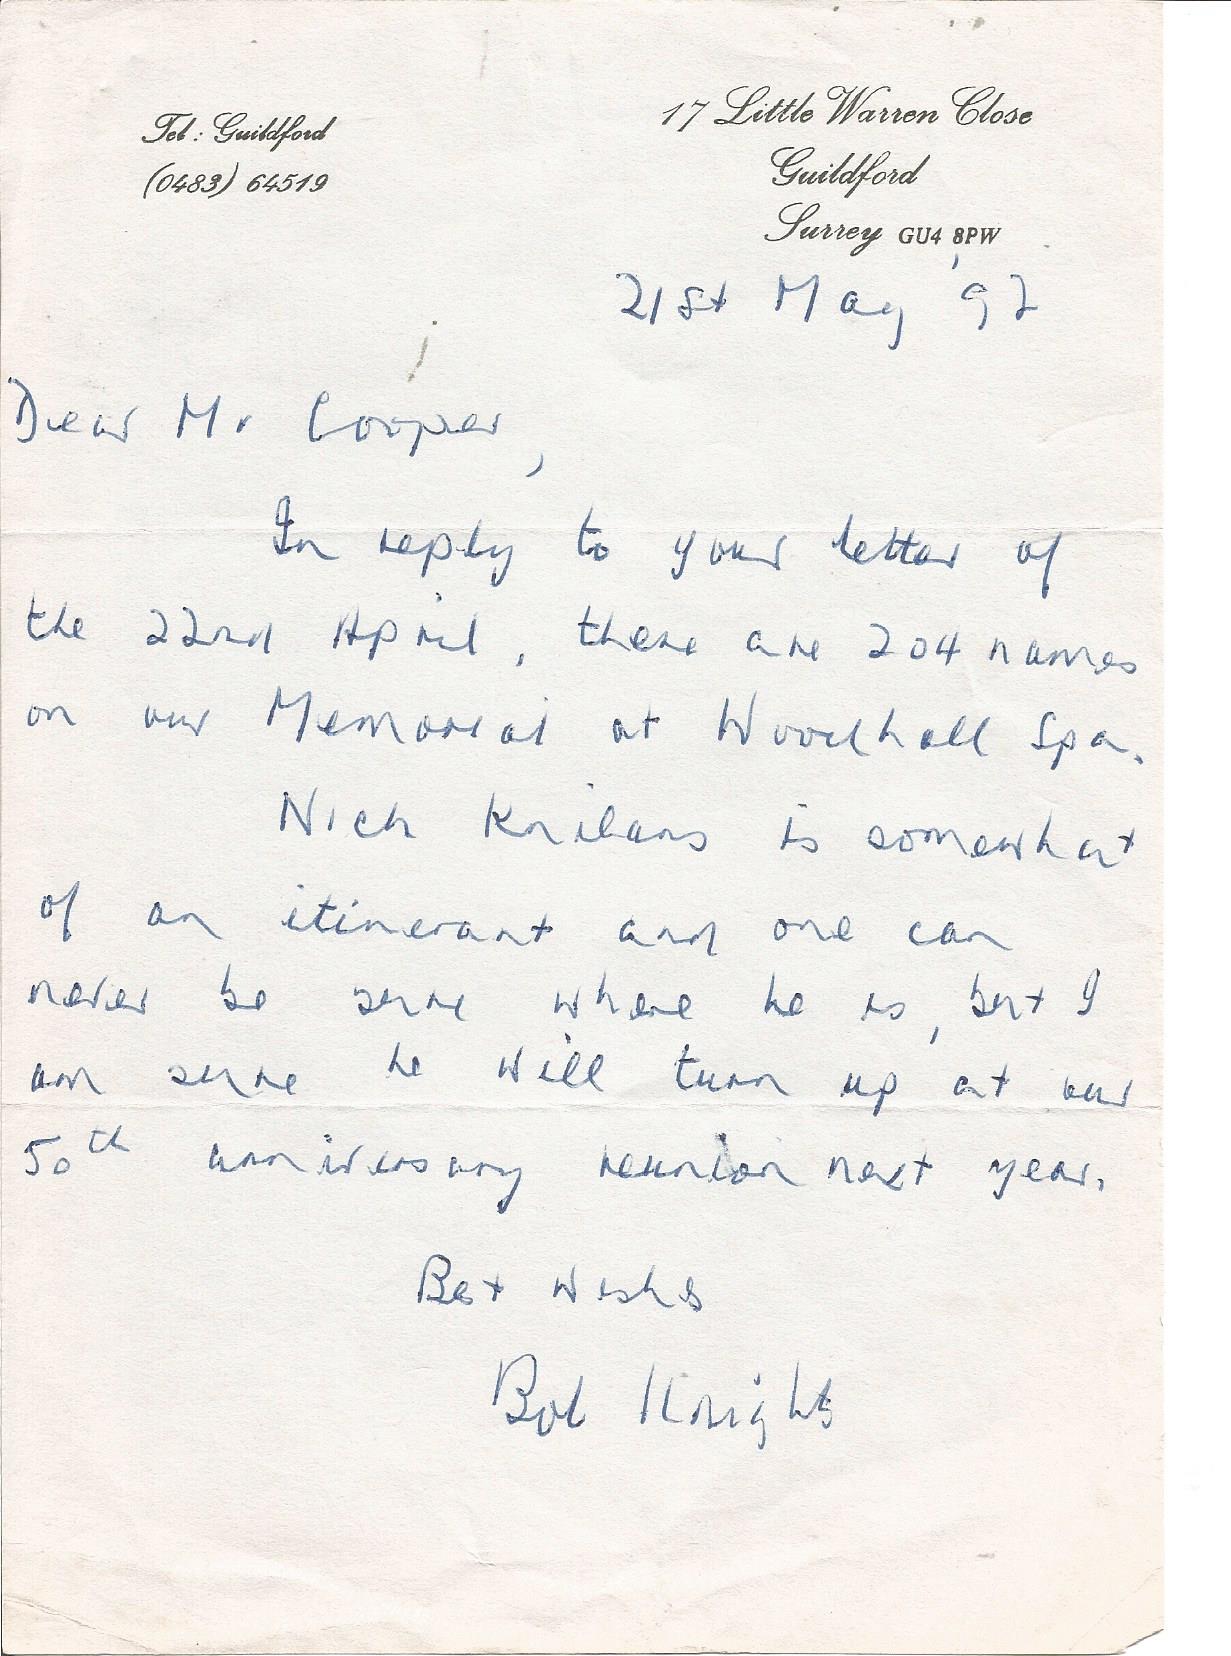 Tel: Guildford
(0483) 64519
17 Little Warren Close
Guildford
Surrey GU4 8PW
21st May '92
Dear Mr Cooper,
In reply to your letter of
the 22nd April, there are 204 names
on our Memorial at Woodhall Spa.
Nick Knilans is somewhat
of an itinerant and one can
never be sure where he is, but I
am sure he will turn up at our
50th anniversary reunion next year.
Best Wishes
Bob Knights